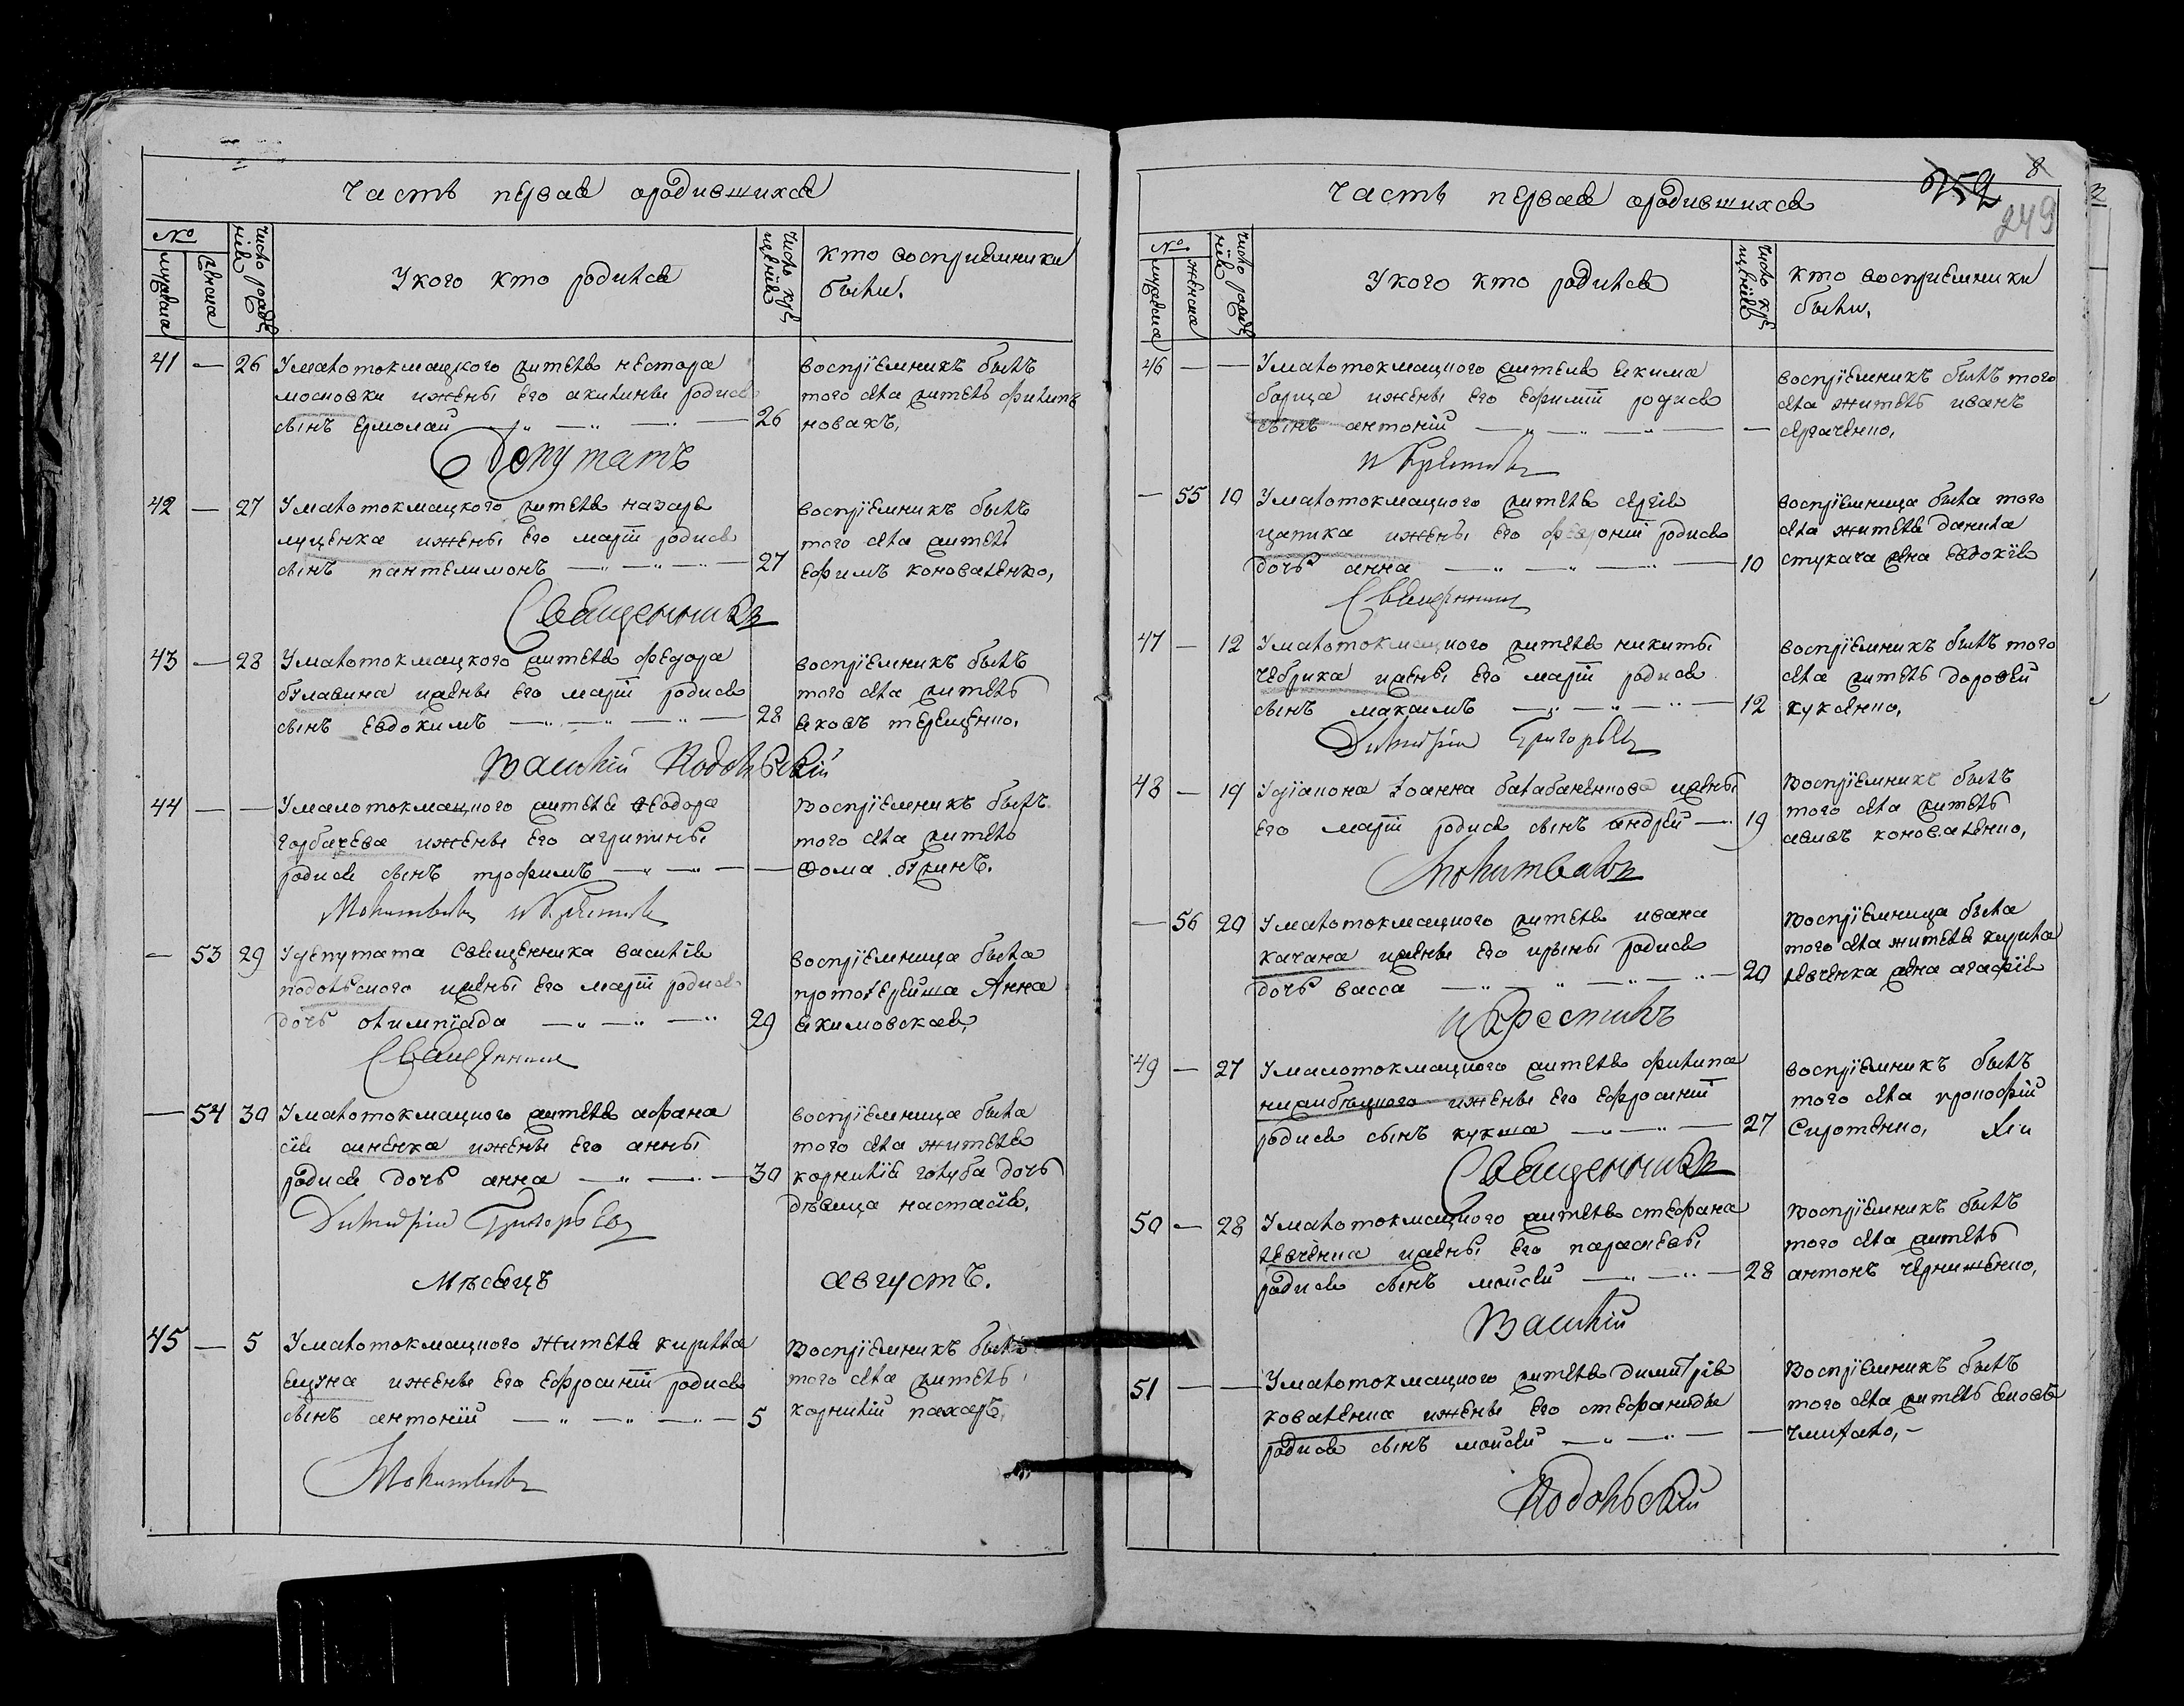 Часть первая ородившихся
№
мужеска
женска
Число рожде
нія
Укого кто родился
Число кре
щенія
кто восприемники
были.
41 — 26 Умалотокмацкого жителя нестора
московки ижены его акилины родися
сынъ Ермолай — 26
воспріемникъ былъ
того села житель филипъ
новакъ,
Депутатъ
42 — 27 Умалотокмацкого жителя назара
луценка ижены его маріи родися
сынъ пантелимонъ — 27
воспріемникъ былъ
того села житель
Ефимъ коноваленко,
Священникъ
43 — 28 Умалотокмацкого жителя федора
булавина ижены его маріи родися
сынъ Евдокимъ — 28
воспріемникъ былъ
того села житель
яковъ терещенко,
Василій Подольскій
44 — — Умалотокмацкого жителя Ѳеодора
горбачева ижены его агрипины
родися сынъ трофимъ — —
Воспріемникъ былъ
того села житель
Ѳома букинъ.
Молитвовалъ и крестилъ
— 53 29 Удепутата Священника василія
подольского ижены его маріи родися
дочь олимпіада — 29
воспріемница была
протоіерейша Анна
якимовская,
Священникъ
— 54 30 Умалотокмацкого жителя афана
сія ижены его анны
родися дочь анна — 30
воспріемница была
того села жителя
корнилія голуба дочь
дѣвица настасія,
Димитрій Григорьевъ
Мѣсяцъ августъ.
45 — 5 Умалотокмацкого жителя кирилла
ецуна ижены его Ефросиніи родися
сынъ антоній — 5
Воспріемникъ былъ
того села житель
корнилій пахарь,
Молитвовалъ
8
252
249
Часть первая ородившихся
№
мужеска
женска
Число рожде
нія
Укого кто родился
Число кре
щенія
кто восприемники
были,
46 — — Умалотокмацкого жителя екима
борца ижены его Ефиміи родися
сынъ антоній — —
воспріемникъ былъ того
села житель иванъ
сергаченко,
и крестилъ
— 55 10 Умалотокмацкого жителя сергія
цапика ижены его февроніи родися
дочь анна — 10
воспріемница была того
села жителя данила
стукача жена Евдокія
Священникъ
47 — 12 Умалотокмацкого жителя никиты
чебрика ижены его маріи родися
сынъ максимъ — 12
воспріемникъ былъ того
села житель дорофей
куксенко,
Димитрій Григорьевъ
48 — 19 Удіакона Іоанна балабаненкова ижены
его маріи родися сынъ андрей — 19
Воспріемникъ былъ
того села житель
савивъ коноваленко,
Молитвовалъ
— 56 20 Умалотокмацкого жителя ивана
качана ижены его ирины родися
дочь васса — 20
Воспріемница была
того села жителя кирила
левченка жена агафія
и крестилъ
49 — 27 Умалотокмацкого жителя филипа
ижены его Ефросиніи
родися сынъ кукша — 27
воспріемникъ былъ
того села прокофій
Сиротенко,
Священникъ
50 — 28 Умалотокмацкого жителя стефана
левченка ижены его параскевы
родися сынъ моисей — 28
Воспріемникъ былъ
того села житель
антонъ черниженко,
Василій
51 — — Умалотокмацкого жителя димитрія
коваленка ижены его стефаниды
родися сынъ моисей — —
Воспріемникъ былъ
того села житель яковъ
чмихало, —
Подольскій